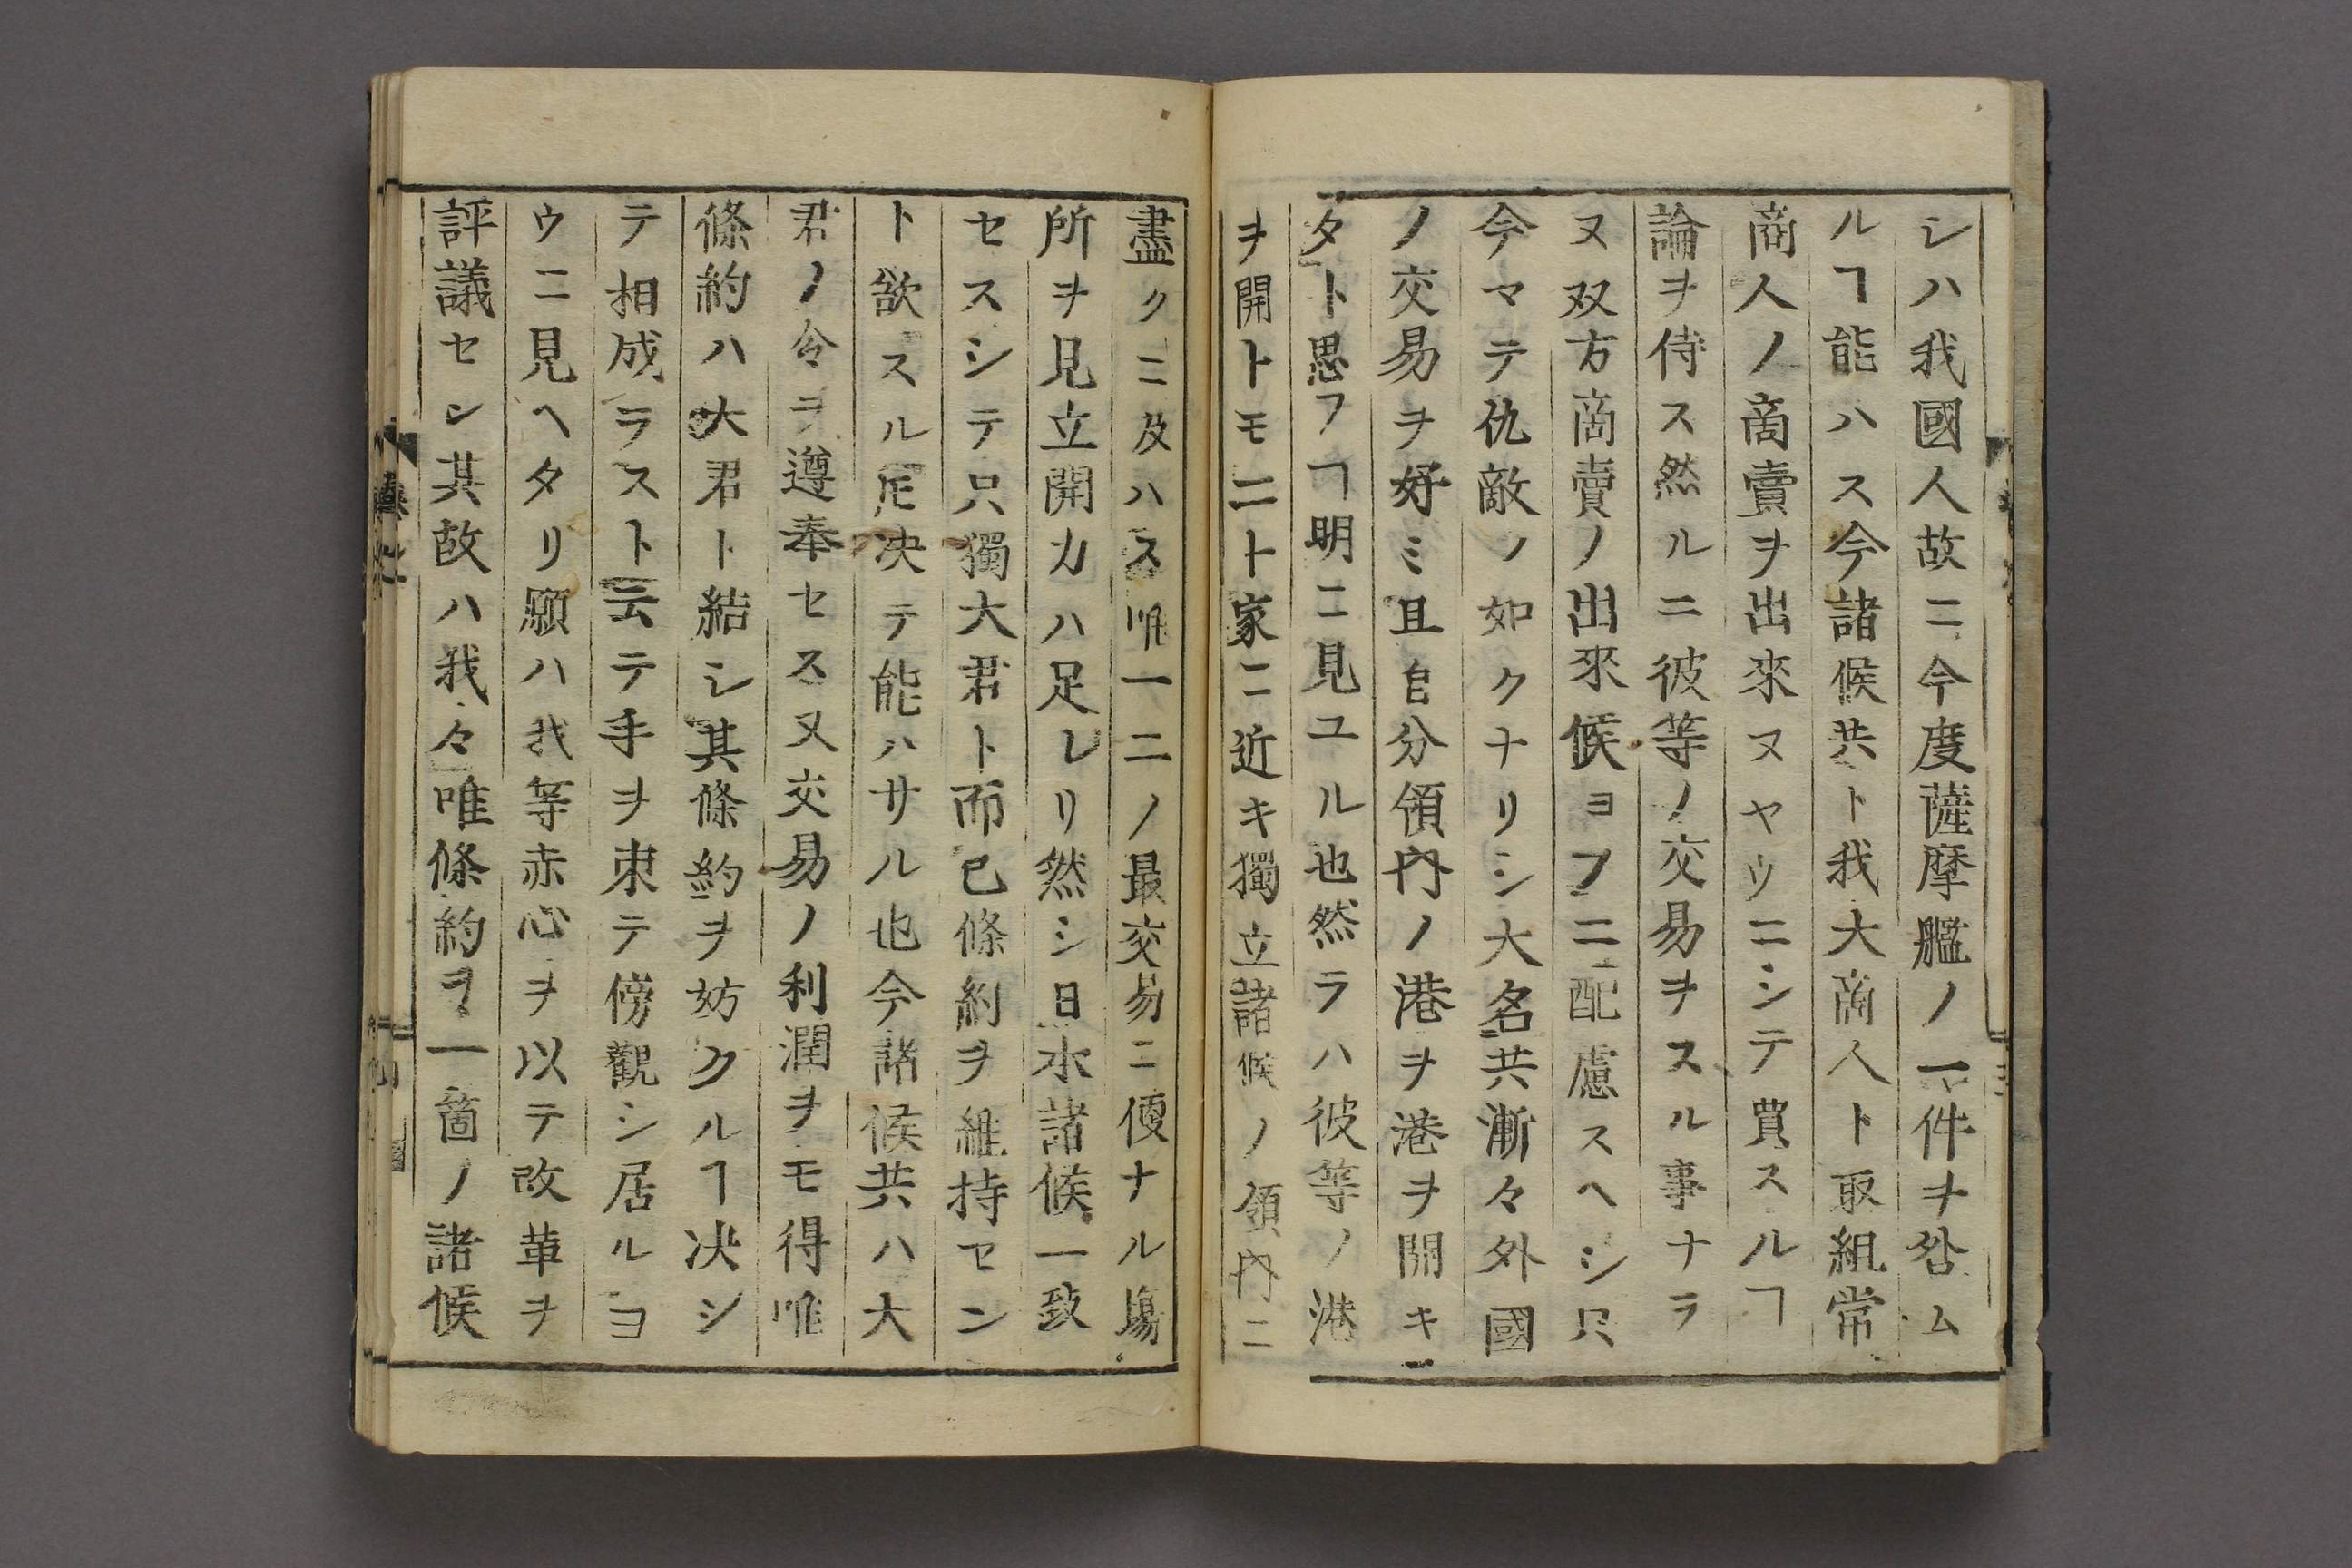 シハ我國人故ニ今度薩摩艦ノ一件ヲ咎ム
ルヿ能ハス今諸候共ト我大商人ト取組常
商人ノ商賣ヲ出來ヌヤウニシテ買スルヿ
論ヲ侍ス然ルニ彼等ノ交易ヲスル事ナラ
ヌ双方商賣ノ出來候ヨフニ配慮スヘシ只
今マテ仇敵ノ如クナリシ大名共漸々外國
ノ交易ヲ好ミ且自分領內ノ港ヲ港ヲ開キ
タト思フヿ明ニ見ユル也然ラハ彼等ノ港
ヲ開トモ二ト家ニ近キ獨立諸候ノ領內ニ
盡クニ及ハス唯一二ノ最交易ニ便ナル塲
所ヲ見立開カハ足レリ然シ日本諸候一致
セスシテ只獨大君ト而已條約ヲ維持セン
ト欲スル定决テ能ハサル也今諸侯共ハ大
君ノ令ヲ遵奉セス又交易ノ利潤ヲモ得唯
條約ハ大君ト結シ其條約ヲ妨クルヿ决シ
テ相成ラスト云テ手ヲ束テ傍觀シ居ルヨ
ウニ見ヘタリ願ハ我等赤心ヲ以テ改革ヲ
評議セシ其故ハ我々唯條約ヲ一箇ノ諸候